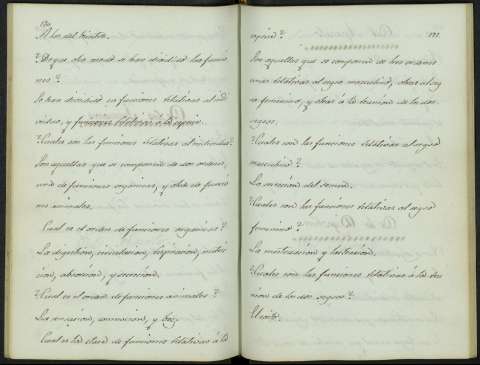 170
A las del instinto.
? De que otro modo se han dividido las funcio
nes?
Se han dividido en funciones relativas al indi
viduo, y funciones relativas a la especie.
? Cuales son las funciones relativas al individuo?
Son aquellas que se componen de dos ordenes,
uno de funciones organicas, y otro de funcio
nes animales.
Cual es el orden de funciones organicas?
La digestion, circulacion, respiracion, nutri
cion, absorcion, y secrecion.
? Cual es el orden de funciones animales?
La sensacion, locomocion, y voz.
Cual es la clase de funciones relativas á la
especie? 171.
Son aquellas que se componen de tres ordenes
unas relativas al sexo masculino, otras al se
xo femenino, y otras á la union de los dos
sexos.
? Cuales son las funciones relativas al sexo
masculino?
La secrecion del semen.
? Cuales son las funciones relativas al sexo
femenino?
La menstruacion y lactacion.
? Cuales son las funciones relativas á la reu
nion de los dos sexos?
El coito.